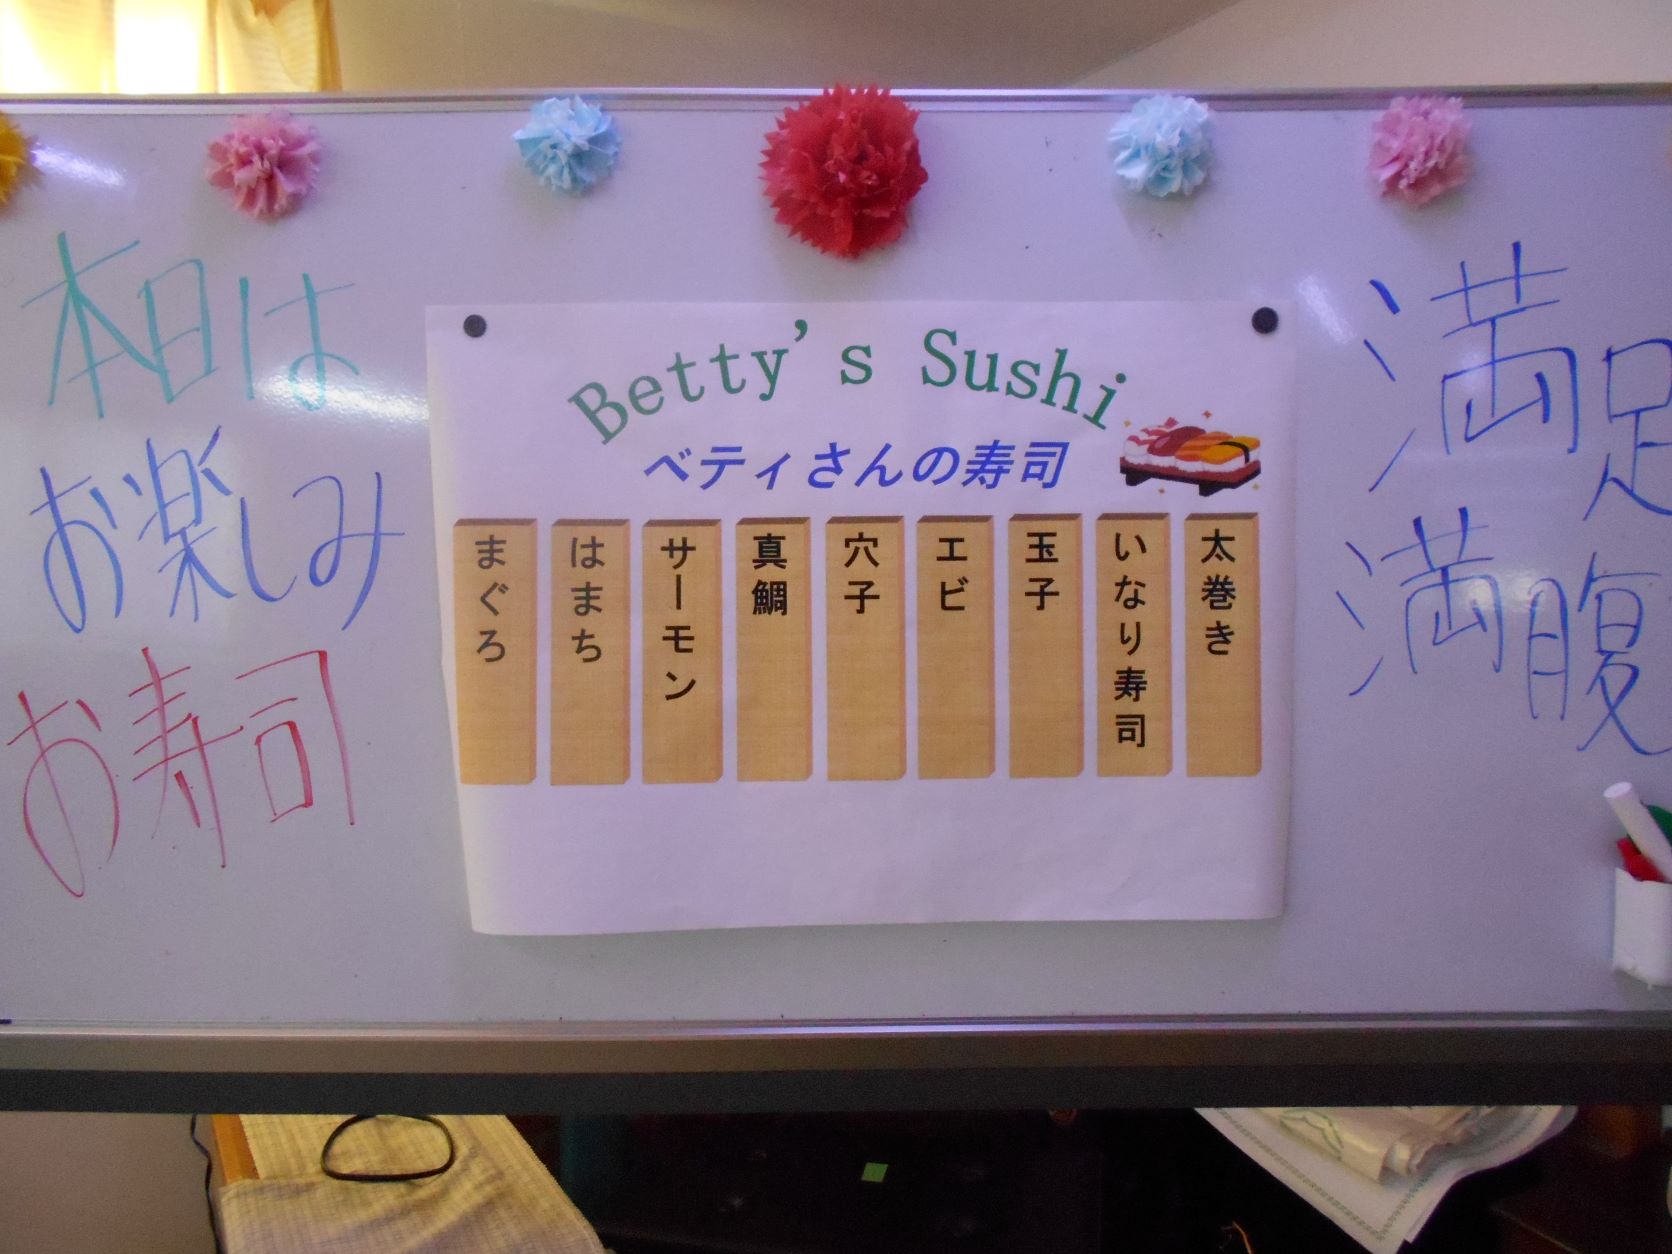 本日は
お楽しみ
お寿司
Betty's Sushi
ベティさんの寿司
まぐろ
はまち
サーモン
真鯛
穴子
エビ
玉子
いなり寿司
太巻き
満足
満腹